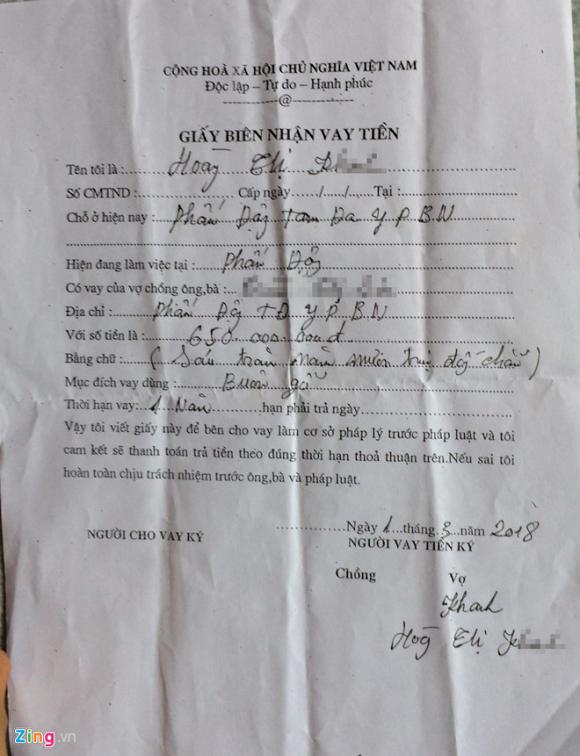 CỘNG HOÀ XÃ HỘI CHỦ NGHĨA VIỆT NAM
Độc lập – Tự do – Hạnh phúc
------------@-------------
GIẤY BIÊN NHẬN VAY TIỀN
Tên tôi là : Hoàg Thị
Số CMTND : Cấp ngày ..../..../...., Tại :
Chỗ ở hiện nay : Phấn Độg Tam Đa Y.P.B.N
Hiện đang làm việc tại : Phấn Độg
Có vay của vợ chồng ông,bà :
Địa chỉ : Phấn Độg TĐ Y.P. B N
Với số tiền là : 650.000.000đ
Bằng chữ : ( Sáu trăm năm mươi chẵn )
Mục đích vay dùng : Buôn gỗ
Thời hạn vay: 1 Năm hạn phải trả ngày
Vậy tôi viết giấy này để bên cho vay làm cơ sở pháp lý trước pháp luật và tôi
cam kết sẽ thanh toán trả tiền theo đúng thời hạn thoả thuận trên.Nếu sai tôi
hoàn toàn chịu trách nhiệm trước ông,bà và pháp luật.
Ngày 1 tháng 3 năm 2018
NGƯỜI CHO VAY KÝ NGƯỜI VAY TIỀN KÝ
Chồng Vợ
Khanh
Hoàg Thị
Zing.vn